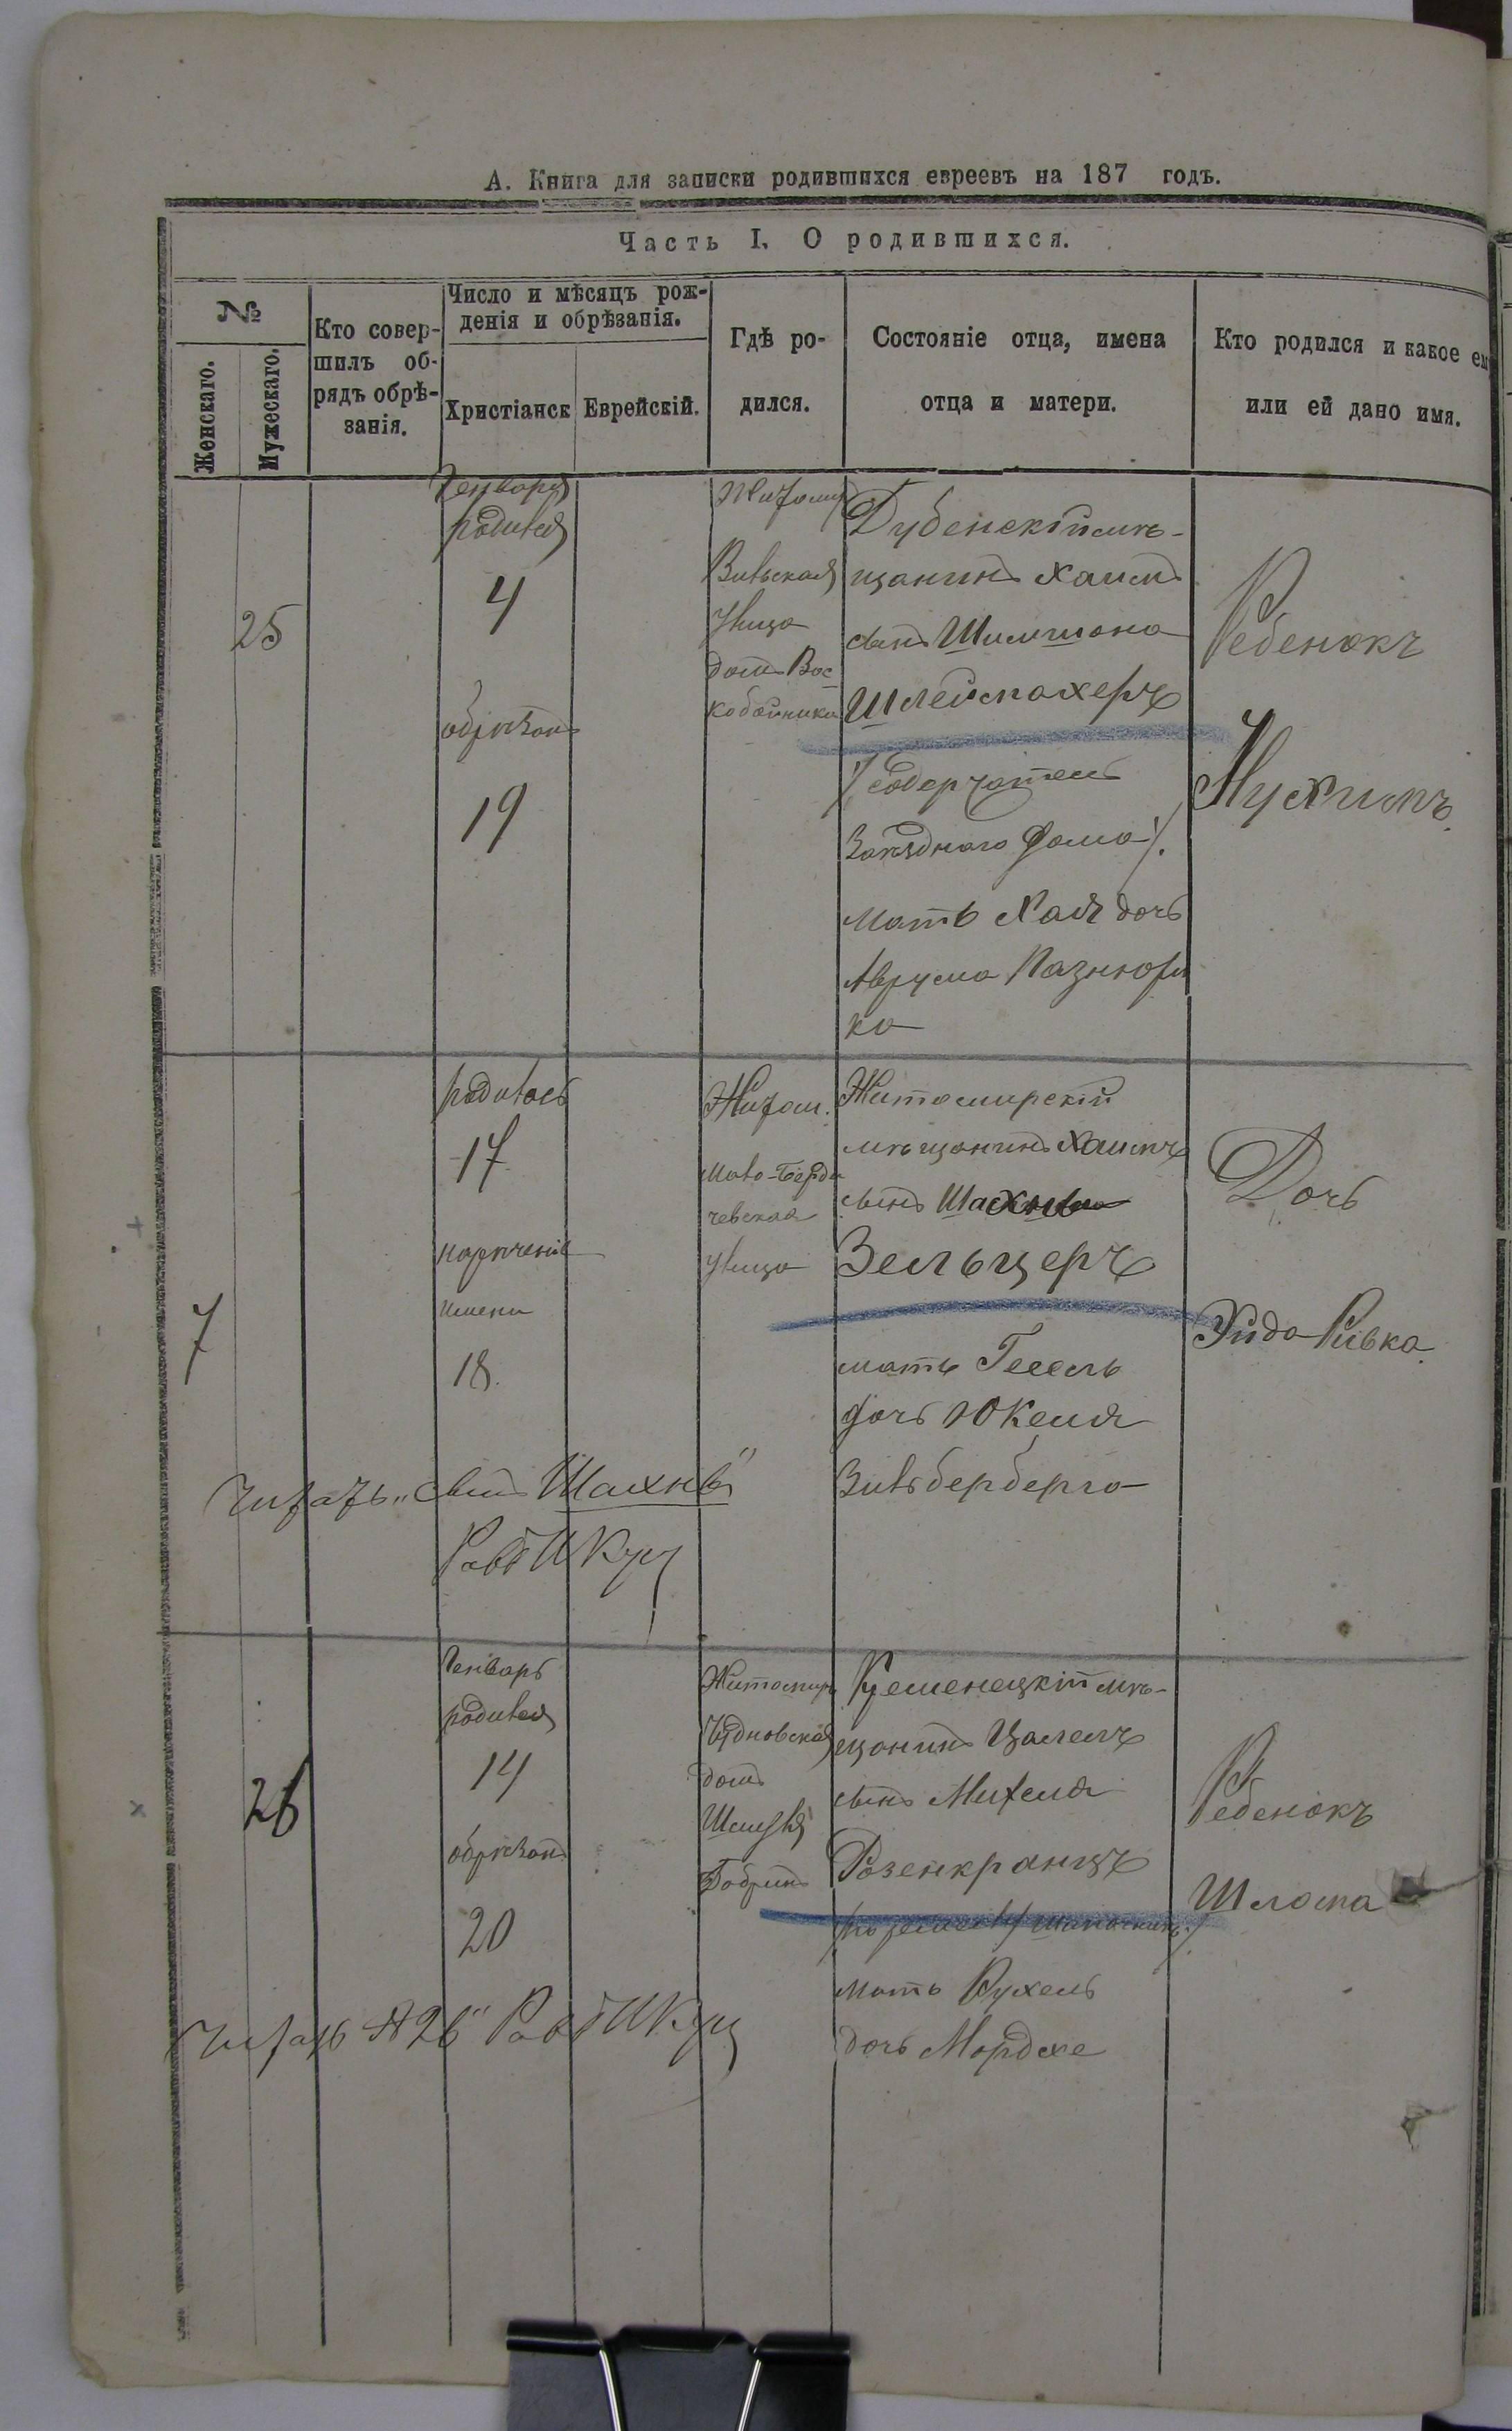 А. Книга для записки родившихся евреевъ на 187 годъ.
Часть I. О родившихся.
№
Женскаго.
Мужескаго.
Кто совер-
шилъ об-
рядъ обрѣ-
занія.
Число и мѣсяцъ рож-
денія и обрѣзанія.
Христіанск
Еврейскій.
Гдѣ ро-
дился.
Состояніе отца, имена
отца и матери.
Кто родился и какое ем
или ей дано имя.
25
Генваря
родился
4
обрѣзанъ
19
Житомир
Вильская
Улица
домъ Вос-
кобойника
Дубенскій мѣ-
щанинъ Хаимъ
сынъ Шимшона
Шлеймахеръ
/содержатель
заѣзднаго дома/.
мать Хая дочь
Аврума
ка
Ребенокъ
Нухимъ.
7
родилась
17
нареченіе
имени
18.
Житом.
Мало-Берди
чевская
улица
Житомирскій
мѣщанинъ Хаимъ
сынъ
Зельцеръ
мать Гесель
дочь Юкеля
Зильберберга
Дочь
Хида-Ривка.
Читать "сынъ Шахны"
Рабб И Куц
26
Генварь
родился
14
обрѣзанъ
20
Житомир
Чудновская
домъ
Шмуля
Бобринъ
Кременецкій мѣ-
щанинъ Цалелъ
сынъ Михеля
Розенкранцъ
/по ремеслу шапочникъ/
мать Рухель
дочь Мордхе
Ребенокъ
Шлома
Читать №26" Рабб И Куц